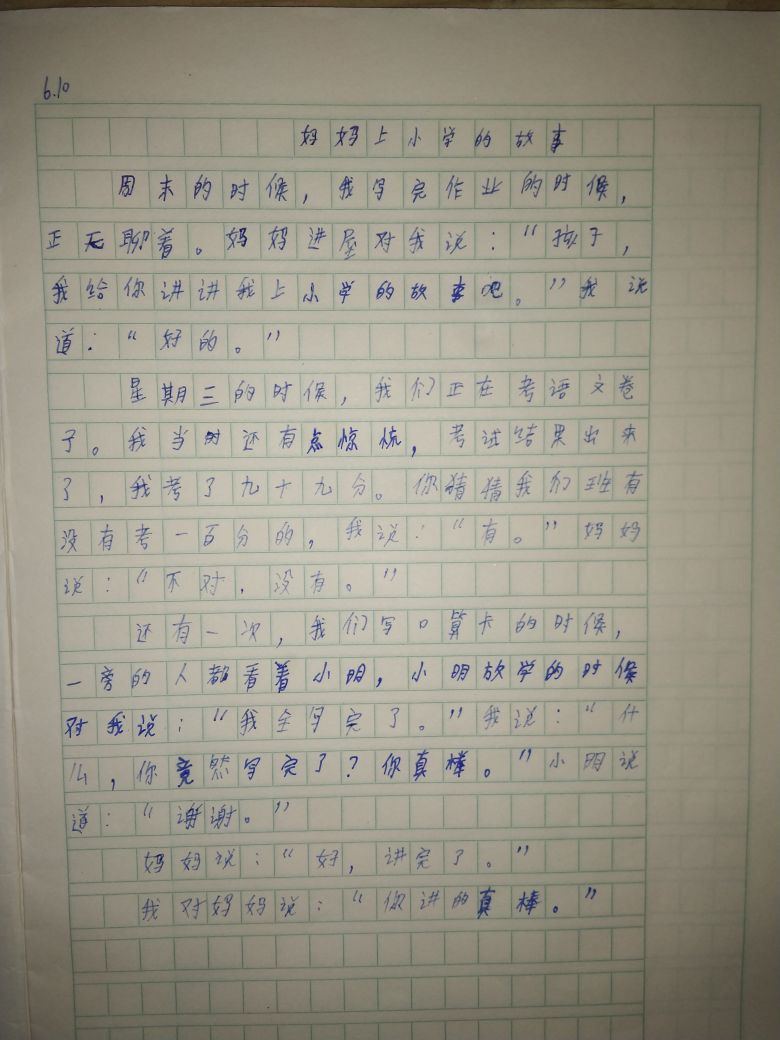 6.10
妈妈上小学的故事
周末的时候，我写完作业的时候，
正无聊着。妈妈进屋对我说：“孩子，
我给你讲讲我上小学的故事吧。”我说
道：“好的。”
星期三的时候，我们正在考语文卷
子。我当时还有点惊慌，考试结果出来
了，我考了九十九分。你猜猜我们班有
没有考一百分的，我说：“有。”妈妈
说：“不对，没有。”
还有一次，我们写口算卡的时候，
一旁的人都看着小明，小明放学的时候
对我说：“我全写完了。”我说：“什
么，你竟然写完了？你真棒。”小明说
道：“谢谢。”
妈妈说：“好，讲完了。”
我对妈妈说：“你讲的真棒。”